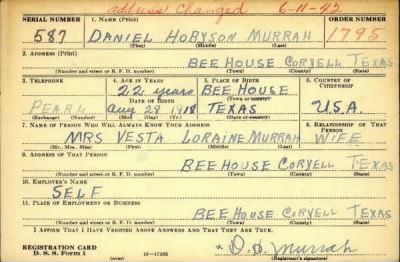 address Changed 6-11-42
SERIAL NUMBER 1. NAME (Print) ORDER NUMBER
587 DANIEL HOBYSON MURRAH 1795
(First) (Middle) (Last)
2. ADDRESS (Print)
BEE HOUSE CORYELL TEXAS
(Number and street or R. F. D. number) (Town) (County) (State)
3. TELEPHONE 4. AGE IN YEARS 5. PLACE OF BIRTH 6. COUNTRY OF CITIZENSHIP
22 years BEE HOUSE
DATE OF BIRTH (Town or county)
PEARL Aug 28 1918 TEXAS U.S.A.
(Exchange) (Number) (Mo.) (Day) (Yr.) (State or country)
7. NAME OF PERSON WHO WILL ALWAYS KNOW YOUR ADDRESS 8. RELATIONSHIP OF THAT PERSON
MRS VESTA LORAINE MURRAH WIFE
(Mr., Mrs., Miss) (First) (Middle) (Last)
9. ADDRESS OF THAT PERSON
BEE HOUSE CORYELL TEXAS
(Number and street or R. F. D. number) (Town) (County) (State)
10. EMPLOYER'S NAME
SELF
11. PLACE OF EMPLOYMENT OR BUSINESS
BEE HOUSE CORYELL TEXAS
(Number and street or R. F. D. number) (Town) (County) (State)
I AFFIRM THAT I HAVE VERIFIED ABOVE ANSWERS AND THAT THEY ARE TRUE.
REGISTRATION CARD
D. S. S. Form 1 16-17105 D. H. Murrah
(over) (Registrant's signature)